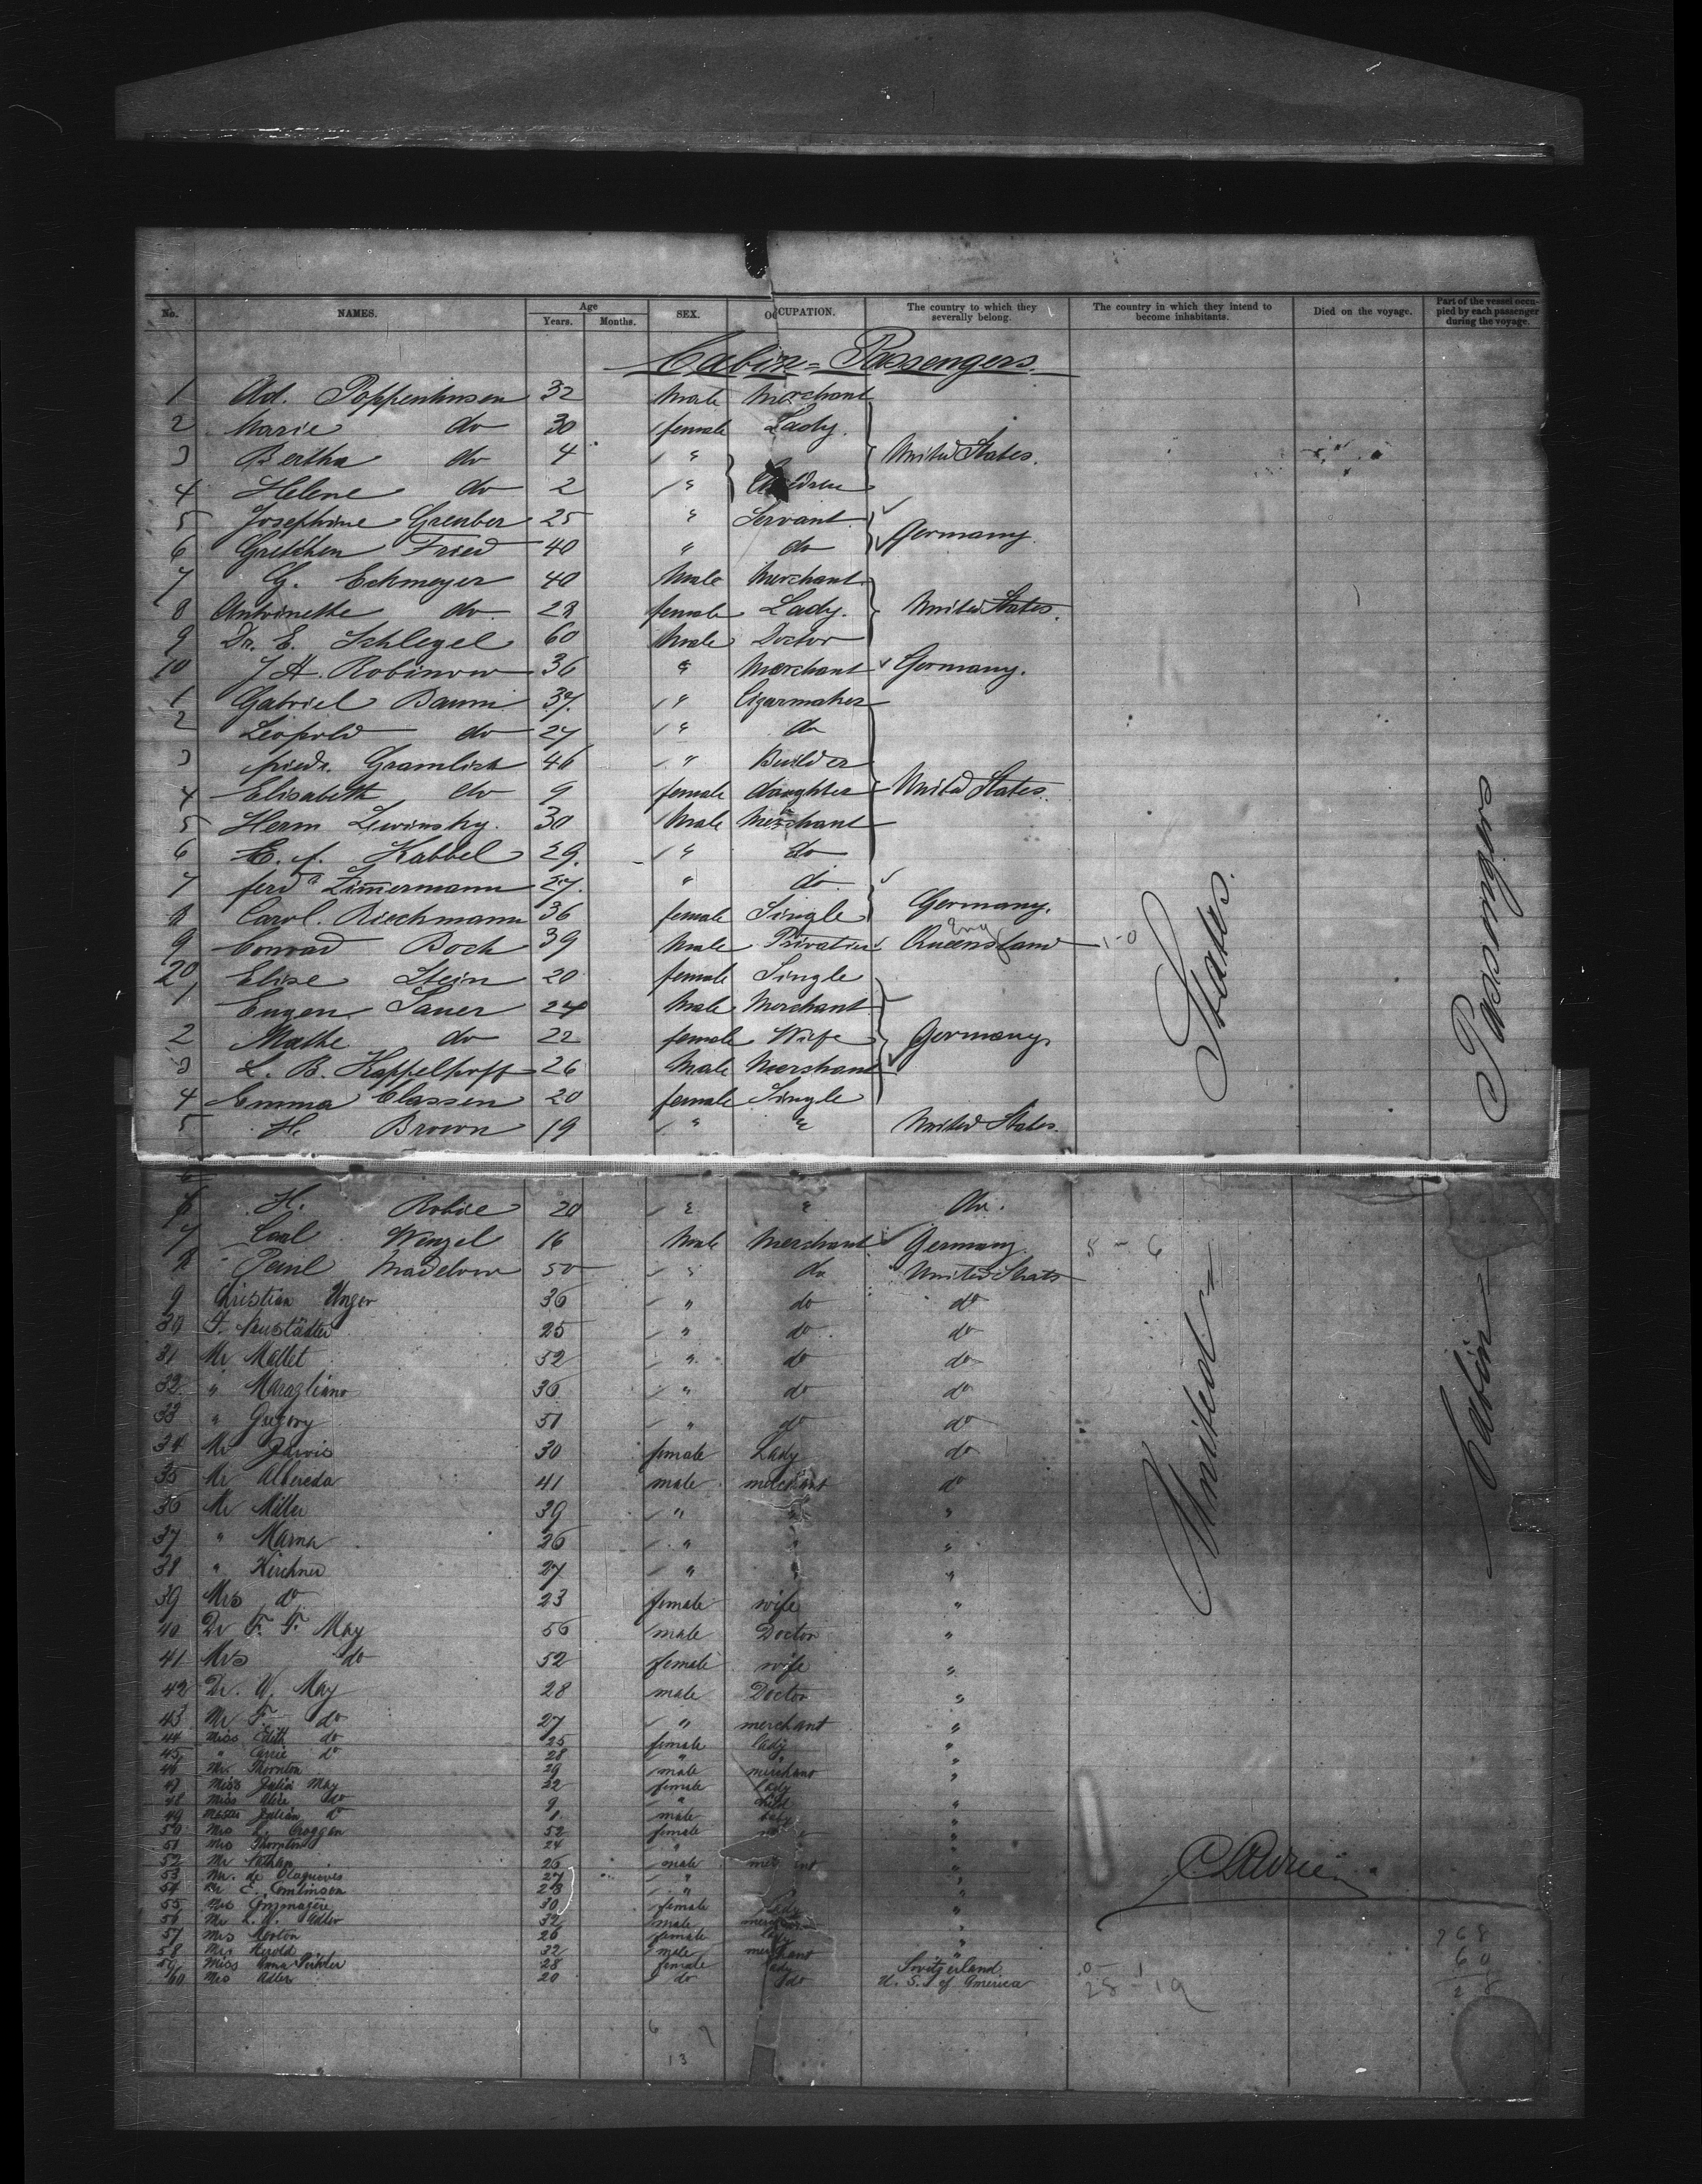 No. NAMES. Age Years. Months. SEX. OCCUPATION. The country to which they severally belong. The country in which they intend to become inhabitants. Died on the voyage. Part of the vessel occupied by each passenger during the voyage.
Cabin = Passengers.
1 Ad. Poppenhusen 32 Male Merchant
2 Marie do 30 female Lady.
3 Bertha do 4 " United States.
4 Helene do 2 " Children
5 Josephine Greuber 25 " Servant
6 Gretchen Fried 40 " do Germany
7 G. Eckmeyer 40 Male Merchant
8 Antoinette do 28 female Lady. United States.
9 Dr. E. Schlegel 60 Male Doctor
10 J. H. Robinow 36 " Merchant Germany.
1 Gabriel Baum 37. " Cigarmaker
2 Leopold do 27 " do
3 friedr. Gramlich 46 " Builder
4 Elisabeth do 9 female daughter United States.
5 Herm Lewinsky. 30 Male Merchant
6 E. f. Kabbel 29. " do
7 ferd Zimmermann 27. " do
8 Carol. Riechmann 36 female Single Germany.
9 Conrad Boch 39 Male Privatier Queensland 1-0
20 Elise Stein 20 female Single
1 Eugen Sauer 24 Male Merchant
2 Mathe do 22 female Wife Germany
3 L. B. Kappelhoff 26 Male Merchant
4 Emma Classen 20 female Single
5 H. Brown 19 " " United States.
6 H. Robie 20 " " do.
7 Carl Wenzel 16 Male Merchant Germany 8 - 6
8 50 " do United States
9 Christian Unger 36 " do do
30 F. Neustädter 25 " do do
31 Mr Mallet 52 " do do
32 " Maragliano 36 " do do
33 " Gregory 51 " do do
34 Mr Jarvis 30 female Lady do
35 Mr Albereda 41 male merchant do
36 Mr Miller 39 " " "
37 " Marna 26 " " "
38 " Kirchner 27 " " "
39 Mrs do 23 female wife "
40 Dr F. F. May 56 male Doctor "
41 Mrs do 52 female wife "
42 Dr. W. May 28 male Doctor "
43 Mr F. do 27 " merchant "
44 Miss Edith do 25 female lady "
45 " do 28 " "
46 Mr Thornton 29 male merchant "
47 Miss Julia May 22 female Lady
48 Miss Alice do 9 " child "
49 Master Julian do 1 male baby "
50 Mrs Croggan 52 female "
51 Mrs Thornton 24 " "
52 Mr Nathan 26 male merchant "
53 Mr. de 27 " "
54 Mr E. Tomlinson 28 " "
55 Mrs 30 female Lady "
56 Mr L. W. Adler 32 male merchant "
57 Mrs Morton 26 female lady "
58 Mr Herold 32 male merchant "
59 Miss Anna 28 female lady Switzerland 0 - 1
60 Mrs Adler 20 do do U. S. of America 28 - 19
United States.
Cabin Passengers
268
60
28
13